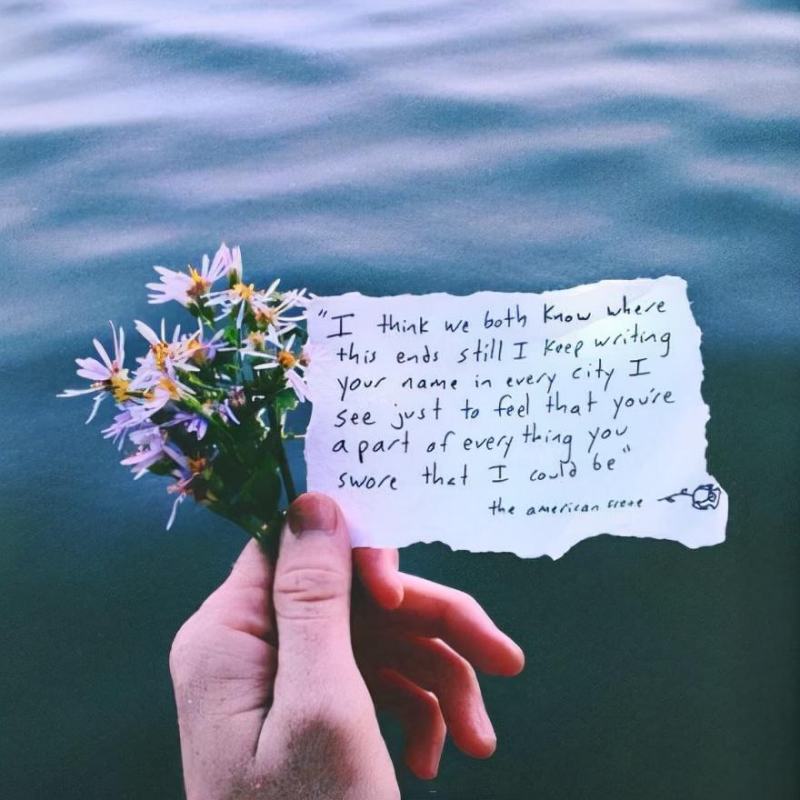 "I think we both know where
this ends still I keep writing
your name in every city I
see just to feel that you're
a part of everything you
swore that I could be"
the american scene